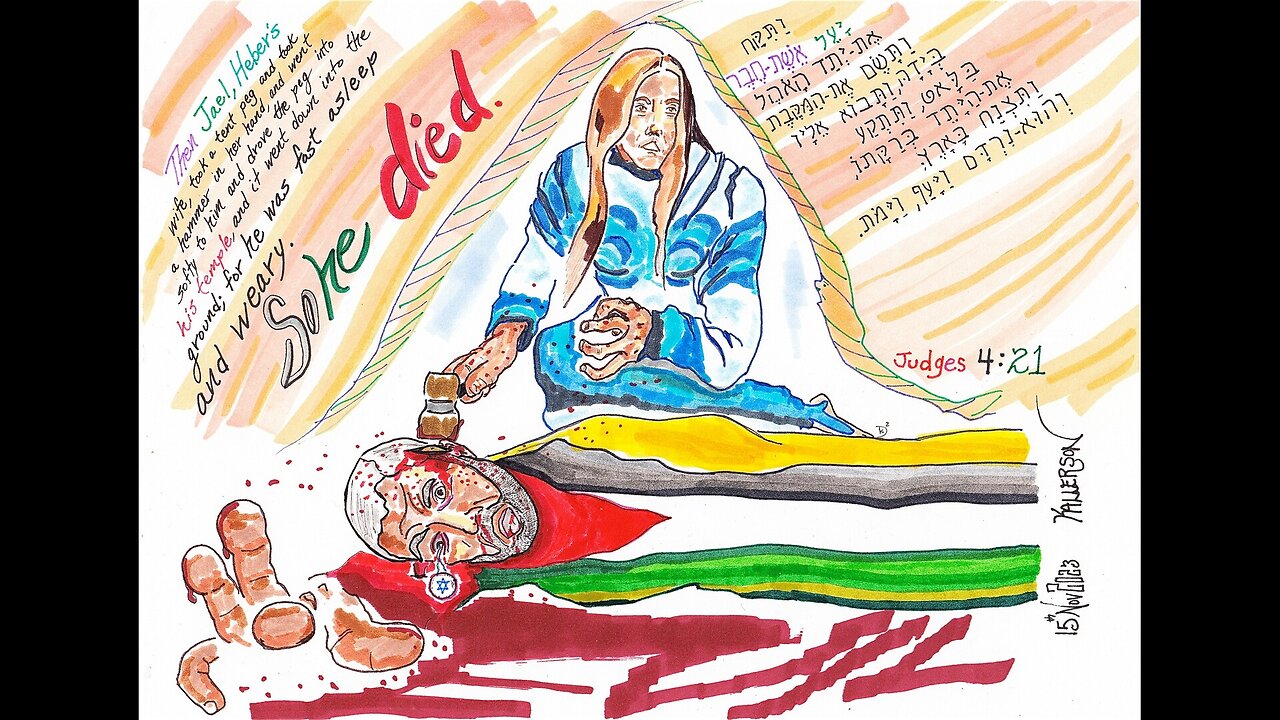 Then Jael, Heber's
wife, took a tent peg and took
a hammer in her hand, and went
softy to him and drove the peg into
his temple, and it went down into the
ground; for he was fast asleep
and weary.
So he died.
וַתִּקַּח
יָעֵל אֵשֶׁת-חֶבֶר
אֶת-יְתַד הָאֹהֶל
וַתָּשֶׂם אֶת-הַמַּקֶּבֶת
בְּיָדָהּ, וַתָּבוֹא אֵלָיו
בַּלָּאט, וַתִּתְקַע
אֶת-הַיָּתֵד בְּרַקָּתוֹ,
וַתִּצְנַח בָּאָרֶץ
וְהוּא-נִרְדָּם וַיָּעַף, וַיָּמֹת.
Judges 4:21
KALLERSON